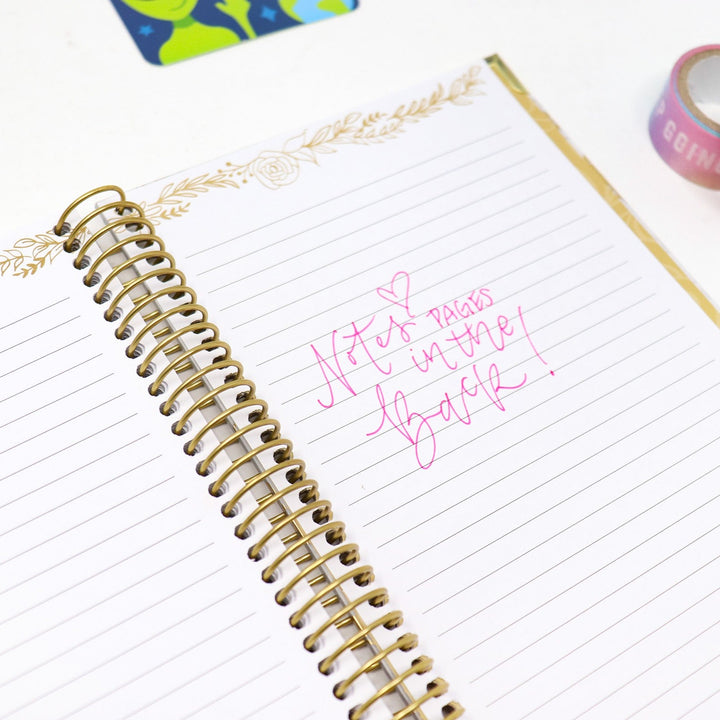 Notes PAGES
in the
Back!